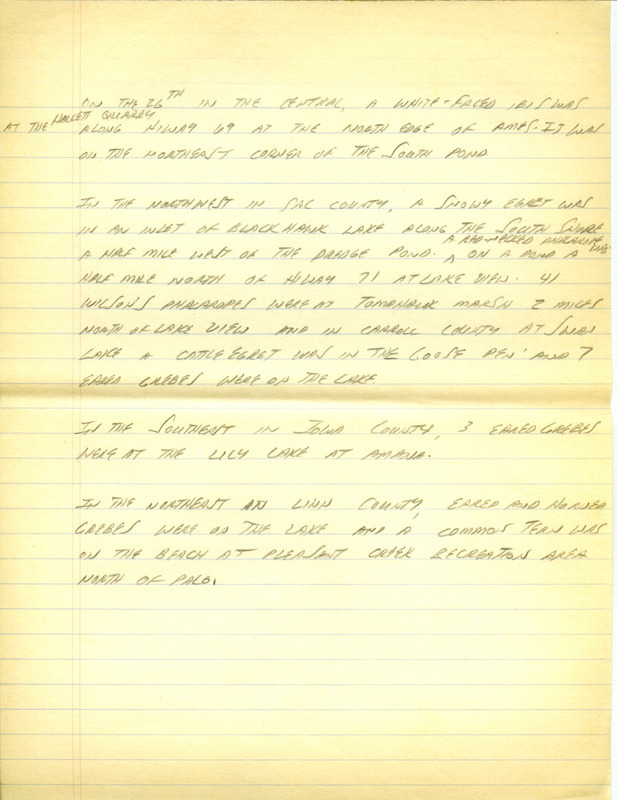 ON THE 26TH IN THE CENTRAL, A WHITE-FACED IBIS WAS
AT THE HALLETT QUARRY
ALONG HIWAY 69 AT THE NORTH EDGE OF AMES. IT WAS
ON THE NORTHEAST CORNER OF THE SOUTH POND
IN THE NORTHWEST IN SAC COUNTY, A SNOWY EGRET WAS
IN AN INLET OF BLACK HAWK LAKE ALONG THE SOUTH SHORE
A HALF MILE WEST OF THE DREDGE POND. A RED-NECKED PHALAROPE WAS ON A POND A
HALF MILE NORTH OF HIWAY 71 AT LAKE VIEW. 41
WILSONS PHALAROPES WERE AT TOMAHAWK MARSH 2 MILES
NORTH OF LAKE VIEW AND IN CARROLL COUNTY AT SWAN
LAKE A CATTLE EGRET WAS IN THE GOOSE PEN AND 7
EARED GREBES WERE ON THE LAKE
IN THE SOUTHEAST IN IOWA COUNTY, 3 EARED GREBES
WERE AT THE LILY LAKE AT AMANA.
IN THE NORTHEAST IN LINN COUNTY, EARED AND HORNED
GREBES WERE ON THE LAKE AND A COMMON TERN WAS
ON THE BEACH AT PLEASANT CREEK RECREATION AREA
NORTH OF PALO.